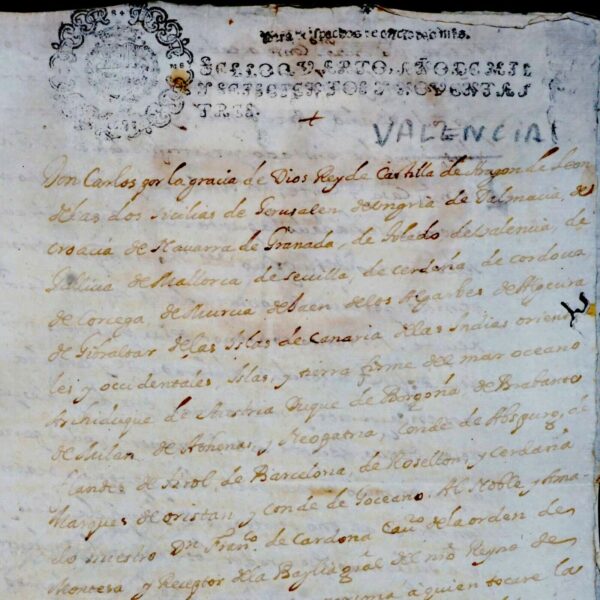 Para despachos de oficio dos mrs.
SELLO QVARTO, AÑO DE MIL
Y SEISCIENTOS Y NOVENTA Y
TRES.
VALENCIA
Don Carlos por la gracia de Dios Rey de Castilla de Aragon de Leon
de las dos Sicilias de Jerusalen de Ungria de Dalmacia, de
Croacia de Navarra de Granada, de Toledo de Valencia, de
Galicia de Mallorca de Sevilla, de Cerdeña de Cordova
de Corcega de Murcia de Jaen de los Algarbes de Algecira
de Gibraltar de las Islas de Canaria de las Indias orienta
les y occidentales, Islas, y tierra firme del mar oceano
Archiduque de Austria Duque de Borgoña de Brabante
de Milan de Athenas, y Neopatria, Conde de Abspurg, de
Flandes de Tirol, de Barcelona, de Rosellon, y Cerdaña
Marques de Oristan y Conde de Goceano. Al Noble y Ama
do nuestro Dn. Franco. de Cardona Cauo. de la orden de
Montesa y Receptor dela Baylia gral del nro Reyno de
a quien tocare las